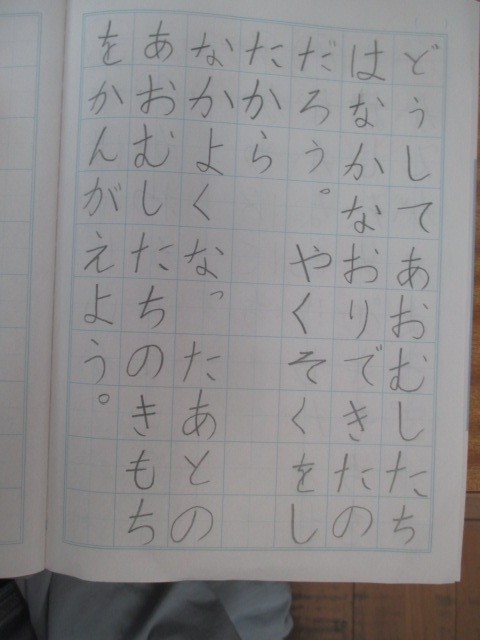 どうしてあおむしたち
はなかなおりできたの
だろう。やくそくをし
たから
なかよくなったあとの
あおむしたちのきもち
をかんがえよう。